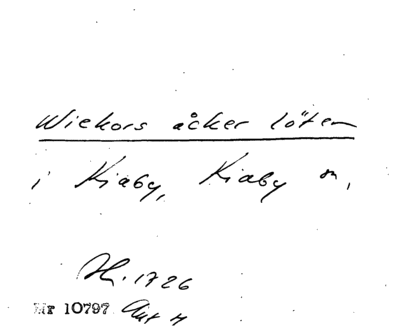 Wiekors åcker löten
i Kiaby, Kiaby sn,
1726
Nr 10797